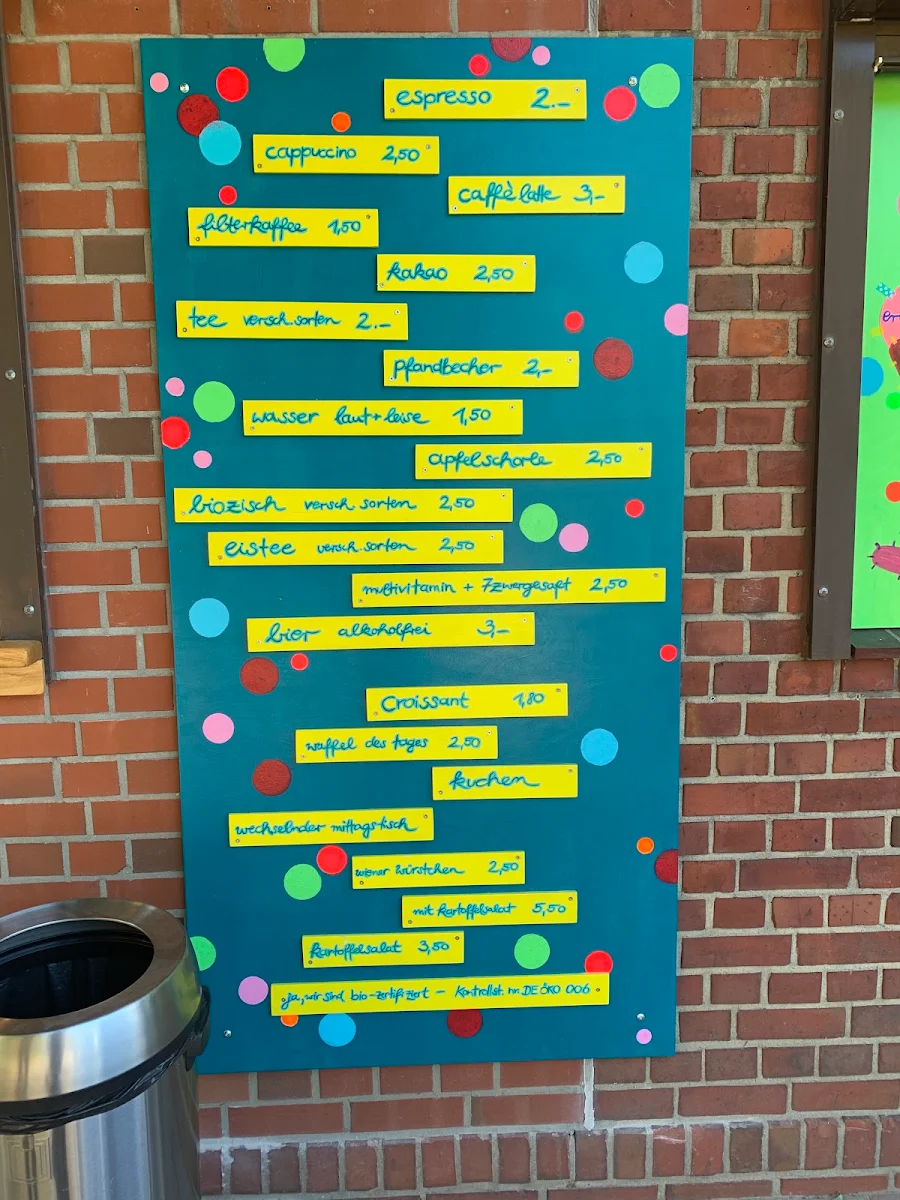 espresso 2.–
cappuccino 2,50
caffè latte 3,–
filterkaffee 1,50
kakao 2,50
tee versch. sorten 2.–
pfandbecher 2,–
wasser laut + leise 1,50
apfelschorle 2,50
biozisch versch. sorten 2,50
eistee versch. sorten 2,50
multivitamin + 7zwergesaft 2,50
bier alkoholfrei 3,–
croissant 1,80
waffel des tages 2,50
kuchen
wechselnder mittagstisch
wiener würstchen 2,50
mit kartoffelsalat 5,50
kartoffelsalat 3,50
ja, wir sind bio-zertifiziert – Kontrollst. nr. DE ÖKO 006